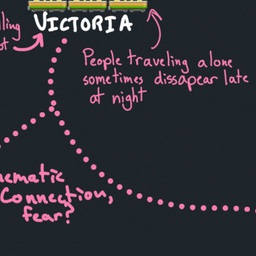 VICTORIA
People traveling alone
sometimes dissapear late
at night
Connection,
fear?